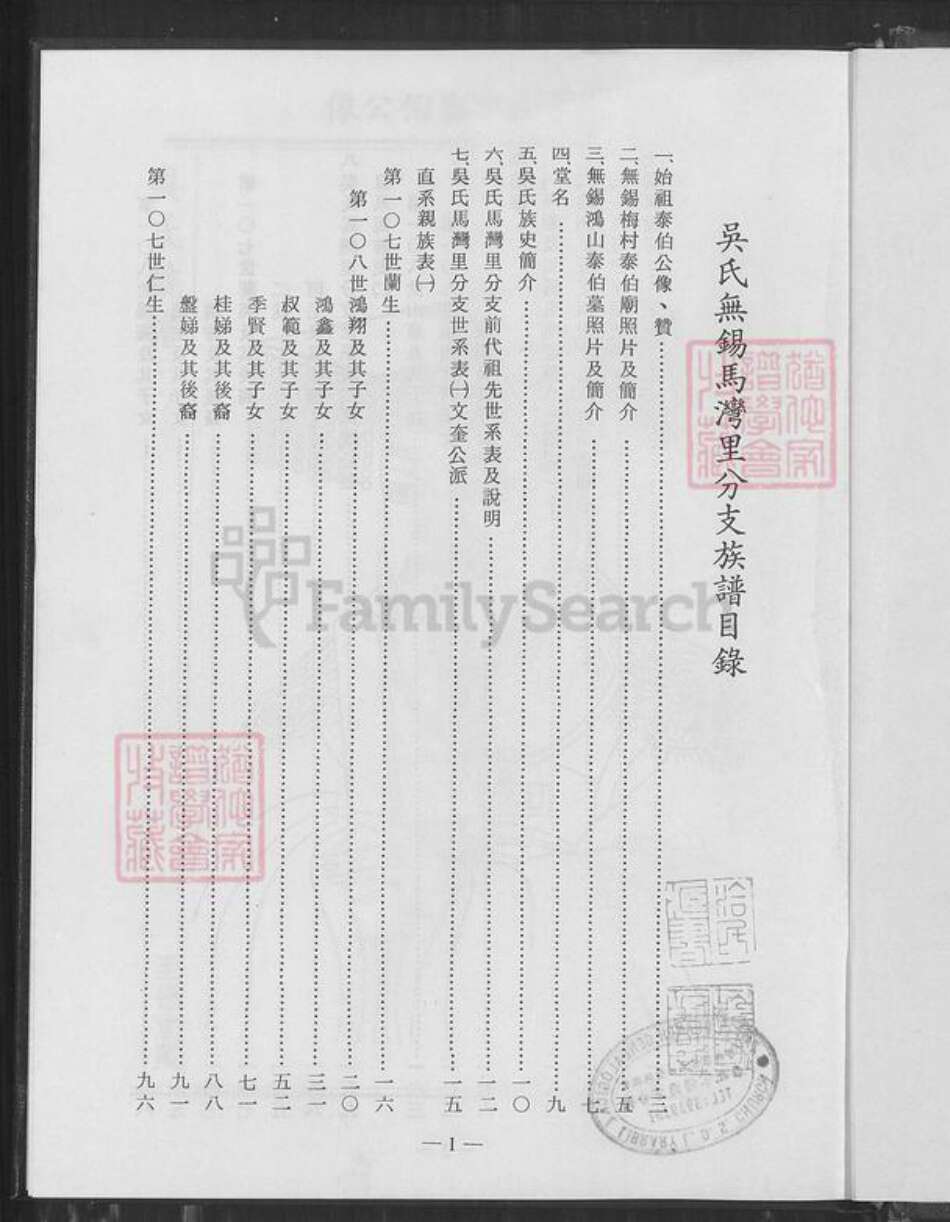 吳氏無錫馬灣里分支族譜目錄
一、始祖泰伯公像、贊……三
二、無錫梅村泰伯廟照片及簡介……五
三、無錫鴻山泰伯墓照片及簡介……七
四、堂名……九
五、吳氏族史簡介……一〇
六、吳氏馬灣里分支前代祖先世系表及說明……一二
七、吳氏馬灣里分支世系表㈠文奎公派……一五
直系親族表㈠
第一〇七世蘭生……一六
第一〇八世鴻翔及其子女……二〇
鴻鑫及其子女……三一
叔範及其子女……五二
季賢及其子女……七一
桂娣及其後裔……八八
盤娣及其後裔……九一
第一〇七世仁生……九六
— 1 —
FamilySearch